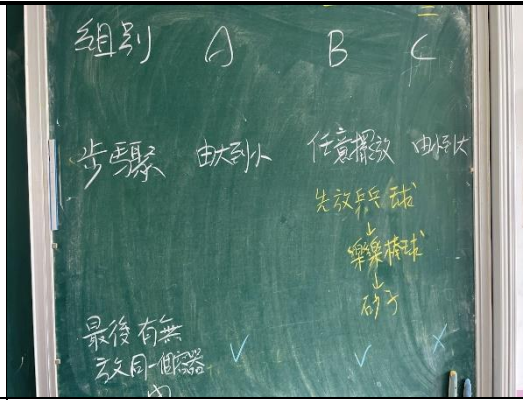 組別 A B C
步驟 由大到小 任意擺放 由小到大
先放乒乓球
↓
樂樂棒球
↓
砂子
最後有無
放同一個容器 ✓ ✓ ✗
內